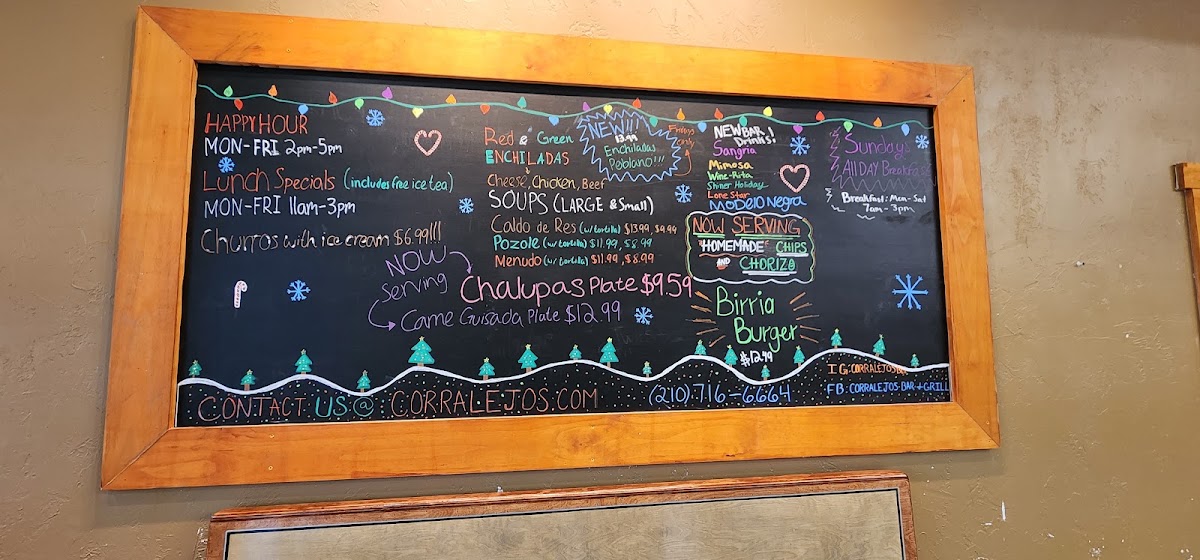 HAPPY HOUR
MON-FRI 2pm-5pm
Lunch Specials (includes free ice tea)
MON-FRI 11am-3pm
Churros with ice cream $6.99!!!
Red & Green
ENCHILADAS
Cheese, Chicken, Beef
SOUPS (LARGE & Small)
Caldo de Res (w/ tortilla) $13.99, $9.99
Pozole (w/ tortilla) $11.99, $8.99
Menudo (w/ tortilla) $11.99, $8.99
NOW
Serving
Chalupas Plate $9.59
Carne Guisada Plate $12.99
NEW!!!
Enchiladas
Poblano!!!
Fridays
only
NEW BAR
Drinks!
Sangria
Mimosa
Wine-Rita
Shiner Holiday
Lone Star
Modelo Negra
NOW SERVING
"HOMEMADE" CHIPS
AND CHORIZO
Birria
Burger
$12.99
Sunday
All DAY Breakfast
Breakfast: Mon-Sat
7am-3pm
CONTACT US @ CORRALEJOS.COM
(210) 716-6664
IG: CORRALEJOSBAR
FB: CORRALEJOS-BAR+GRILL